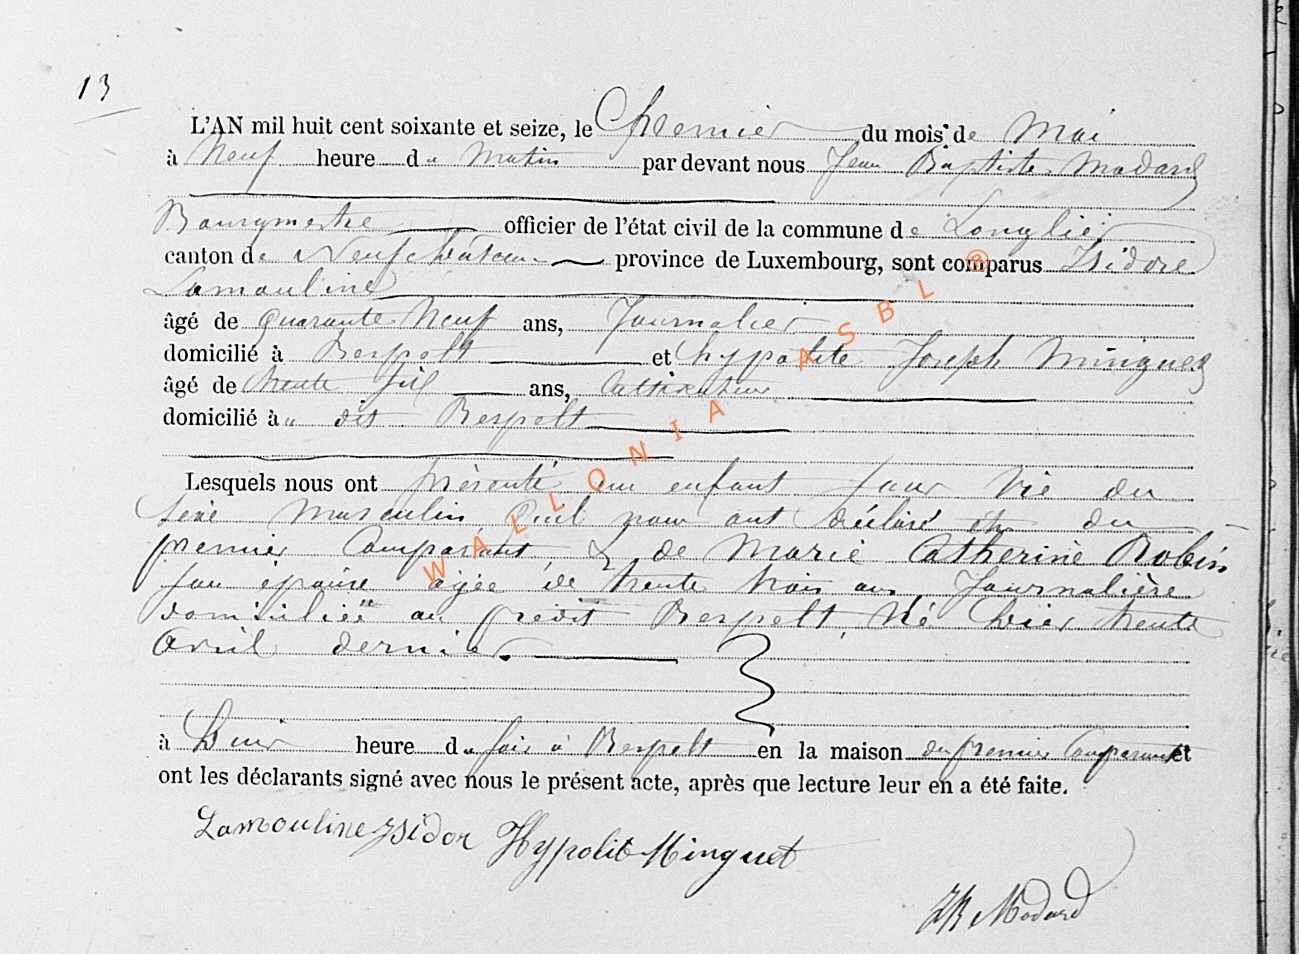 13
L'AN mil huit cent soixante et seize, le Premier du mois de Mai
à Neuf heure du Matin par devant nous Jean Baptiste Modard
Bourgmestre officier de l'état civil de la commune de Longlier
canton de Neufchâteau province de Luxembourg, sont comparus Isidore
Lamouline
âgé de quarante Neuf ans, Journalier
domicilié à Respelt et hypolite Joseph Minguet
âgé de trente ans, Cultivateur
domicilié à u dit Respelt
Lesquels nous ont présenté un enfant en Vie du
sexe masculin, quil nous ont déclaré être du
premier Comparant & de Marie Catherine Robin
son épouse agée de trente trois ans Journalière
domiciliée au prédit Respelt, Né hier trente
avril dernier
à heure du soir à Respelt en la maison du premier Comparant et
ont les déclarants signé avec nous le présent acte, après que lecture leur en a été faite.
Lamouline Isidor Hypolit Minguet
JB Modard
WALLONIA ASBL ®